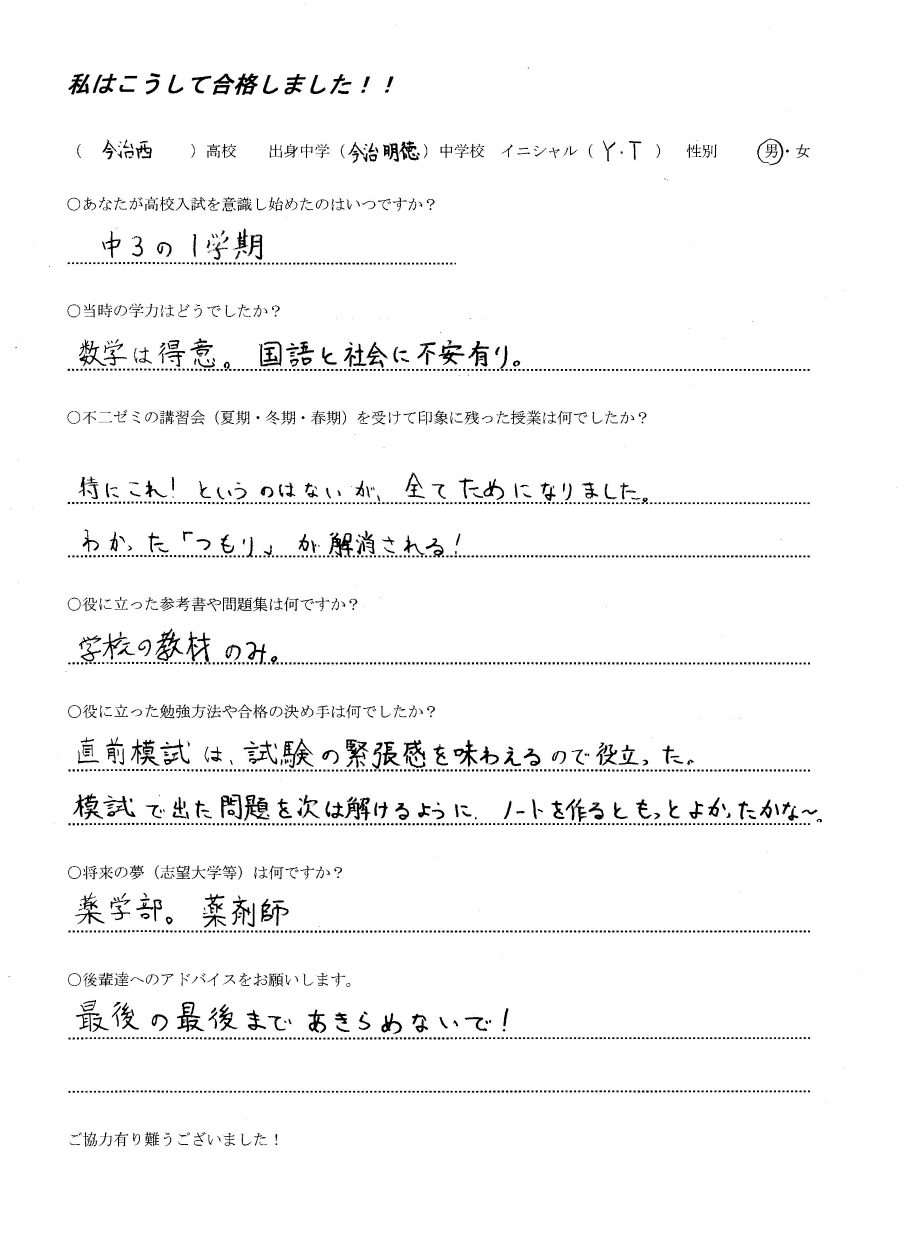 私はこうして合格しました！！
（ 今治西 ）高校 出身中学（今治明徳）中学校 イニシャル（ Y.T ） 性別 男・女
○あなたが高校入試を意識し始めたのはいつですか？
中3の1学期
○当時の学力はどうでしたか？
数学は得意。国語と社会に不安有り。
○不二ゼミの講習会（夏期・冬期・春期）を受けて印象に残った授業は何でしたか？
特にこれ！というのはないが、全てためになりました。
わかった「つもり」が解消される！
○役に立った参考書や問題集は何ですか？
学校の教材のみ。
○役に立った勉強方法や合格の決め手は何でしたか？
直前模試は、試験の緊張感を味わえるので役立った。
模試で出た問題を次は解けるように、ノートを作るともっとよかったかな〜。
○将来の夢（志望大学等）は何ですか？
薬学部。薬剤師
○後輩達へのアドバイスをお願いします。
最後の最後まであきらめないで！
ご協力有り難うございました！